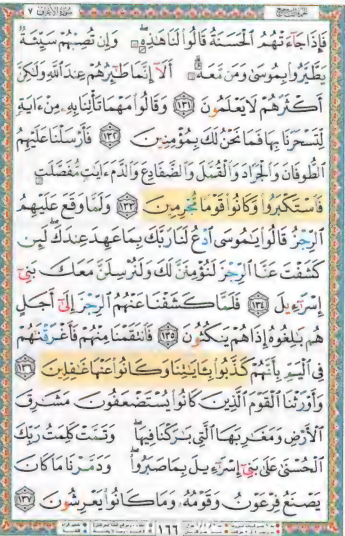 سورة الأعراف ٧
فَإِذَا جَاءَتْهُمُ الْحَسَنَةُ قَالُوا لَنَا هَٰذِهِ ۖ وَإِن تُصِبْهُمْ سَيِّئَةٌ
يَطَّيَّرُوا بِمُوسَىٰ وَمَن مَّعَهُ ۗ أَلَا إِنَّمَا طَائِرُهُمْ عِندَ اللَّهِ وَلَٰكِنَّ
أَكْثَرَهُمْ لَا يَعْلَمُونَ ١٣١ وَقَالُوا مَهْمَا تَأْتِنَا بِهِ مِنْ ءَايَةٍ
لِّتَسْحَرَنَا بِهَا فَمَا نَحْنُ لَكَ بِمُؤْمِنِينَ ١٣٢ فَأَرْسَلْنَا عَلَيْهِمُ
الطُّوفَانَ وَالْجَرَادَ وَالْقُمَّلَ وَالضَّفَادِعَ وَالدَّمَ ءَايَٰتٍ مُّفَصَّلَٰتٍ
فَاسْتَكْبَرُوا وَكَانُوا قَوْمًا مُّجْرِمِينَ ١٣٣ وَلَمَّا وَقَعَ عَلَيْهِمُ
الرِّجْزُ قَالُوا يَٰمُوسَى ادْعُ لَنَا رَبَّكَ بِمَا عَهِدَ عِندَكَ ۖ لَئِن
كَشَفْتَ عَنَّا الرِّجْزَ لَنُؤْمِنَنَّ لَكَ وَلَنُرْسِلَنَّ مَعَكَ بَنِي
إِسْرَٰءِيلَ ١٣٤ فَلَمَّا كَشَفْنَا عَنْهُمُ الرِّجْزَ إِلَىٰ أَجَلٍ
هُم بَٰلِغُوهُ إِذَا هُمْ يَنكُثُونَ ١٣٥ فَانتَقَمْنَا مِنْهُمْ فَأَغْرَقْنَٰهُمْ
فِي الْيَمِّ بِأَنَّهُمْ كَذَّبُوا بِـَٔايَٰتِنَا وَكَانُوا عَنْهَا غَٰفِلِينَ ١٣٦
وَأَوْرَثْنَا الْقَوْمَ الَّذِينَ كَانُوا يُسْتَضْعَفُونَ مَشَٰرِقَ
الْأَرْضِ وَمَغَٰرِبَهَا الَّتِي بَٰرَكْنَا فِيهَا ۖ وَتَمَّتْ كَلِمَتُ رَبِّكَ
الْحُسْنَىٰ عَلَىٰ بَنِي إِسْرَٰءِيلَ بِمَا صَبَرُوا ۖ وَدَمَّرْنَا مَا كَانَ
يَصْنَعُ فِرْعَوْنُ وَقَوْمُهُ وَمَا كَانُوا يَعْرِشُونَ ١٣٧
١٦٦